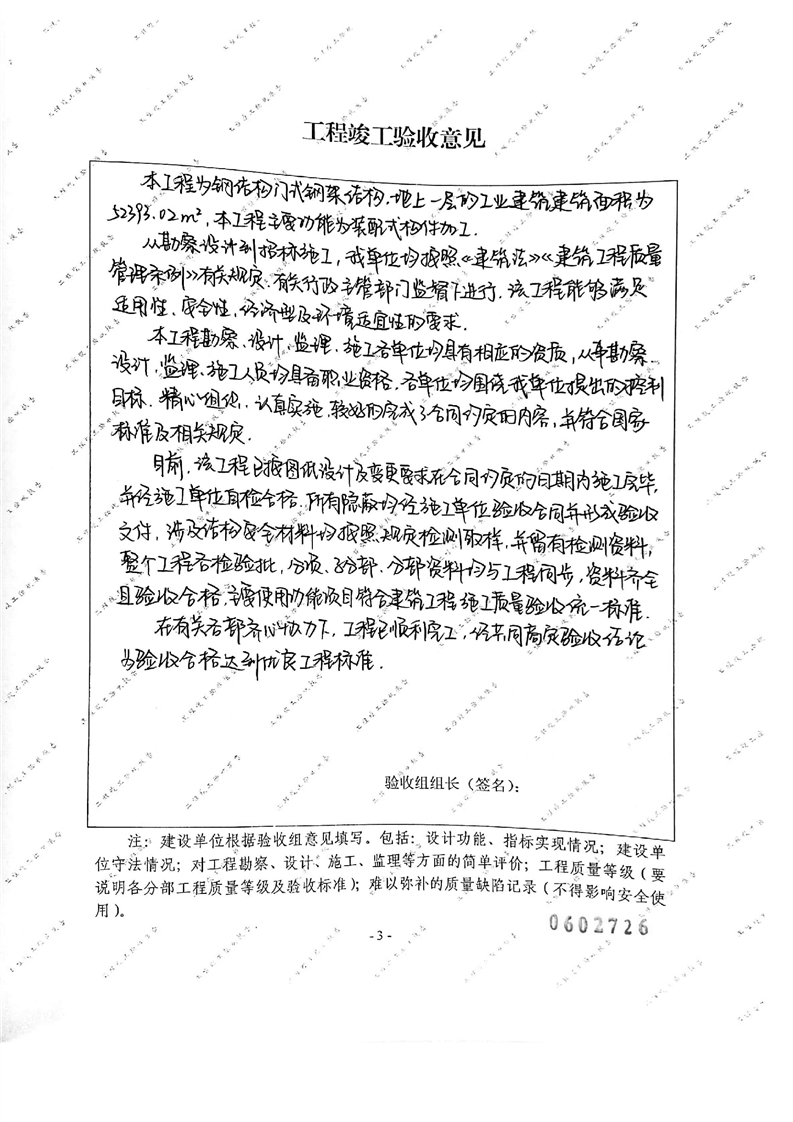 工程竣工验收意见
本工程为钢结构门式钢架结构.地上一层的工业建筑,建筑面积为
52393.02m²,本工程主要功能为装配式构件加工.
从勘察设计到招标施工,我单位均按照《建筑法》《建筑工程质量
管理条例》有关规定.有关行政主管部门监督下进行.该工程能够满足
适用性、安全性、经济型及环境适宜性的要求.
本工程勘察、设计、监理、施工各单位均具有相应的资质,从事勘察.
设计、监理、施工人员均具备职业资格.各单位均围绕我单位提出的控制
目标.精心组织、认真实施.较好的完成了合同约定的内容,并符合国家
标准及相关规定.
目前.该工程已按图纸设计及变更要求在合同约定的日期内施工完毕,
并经施工单位自检合格.所有隐蔽均经施工单位验收合同并形成验收
文件,涉及结构安全材料均按照规定检测取样,并留有检测资料,
整个工程各检验批,分项、子分部、分部资料均与工程同步,资料齐全
且验收合格.主要使用功能项目符合建筑工程施工质量验收统一标准.
在有关各部齐心协力下,工程已顺利完工,经共同商定验收结论
为验收合格达到优良工程标准.
验收组组长（签名）:
注: 建设单位根据验收组意见填写。包括: 设计功能、指标实现情况; 建设单
位守法情况; 对工程勘察、设计、施工、监理等方面的简单评价; 工程质量等级（要
说明各分部工程质量等级及验收标准）; 难以弥补的质量缺陷记录（不得影响安全使
用）。
0602726
- 3 -